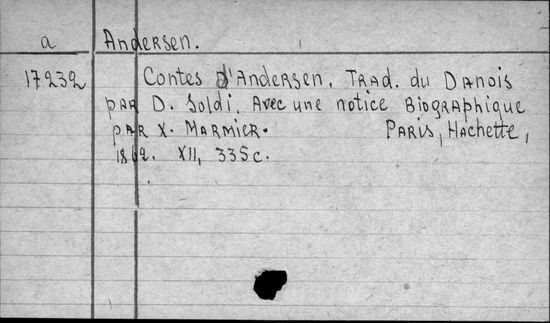 a Andersen.
17232 Contes d'Andersen. Trad. du Danois
par D. Soldi. Avec une notice Biographique
par X. Marmier. Paris, Hachette,
1862. XII, 335 c.